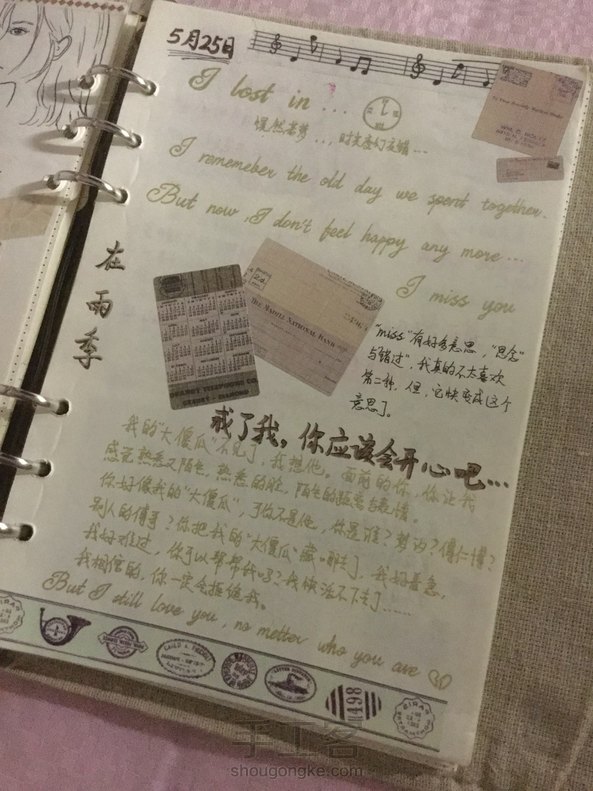 5月25日
I lost in ...
恍然若梦...，时光变幻交错...
I rememeber the old day we spent together.
But now, I don't feel happy any more...
I miss you
在雨季
THE NADTLE NATIONAL BANK
GRANBY TELEPHONE CO.
GRANBY - DIAMOND
"miss"有好多意思，"思念"
与错过"，我真的不太喜欢
第二种，但，它快变成这个
意思了。
戒了我，你应该会开心吧...
我的"大傻瓜"不见了，我想他。面前的你，你让我
感觉熟悉又陌生，熟悉的脸，陌生的距离与表情。
你好像我的"大傻瓜"，可你不是他，你是谁？
别人的傅哥？你把我的"大傻瓜"藏哪去了，我好着急，
我好难过，你可以帮帮我吗？我快活不下去了......
我相信的，你一定会拒绝我。
But I still love you, no metter who you are
1498
手工客
shougongke.com